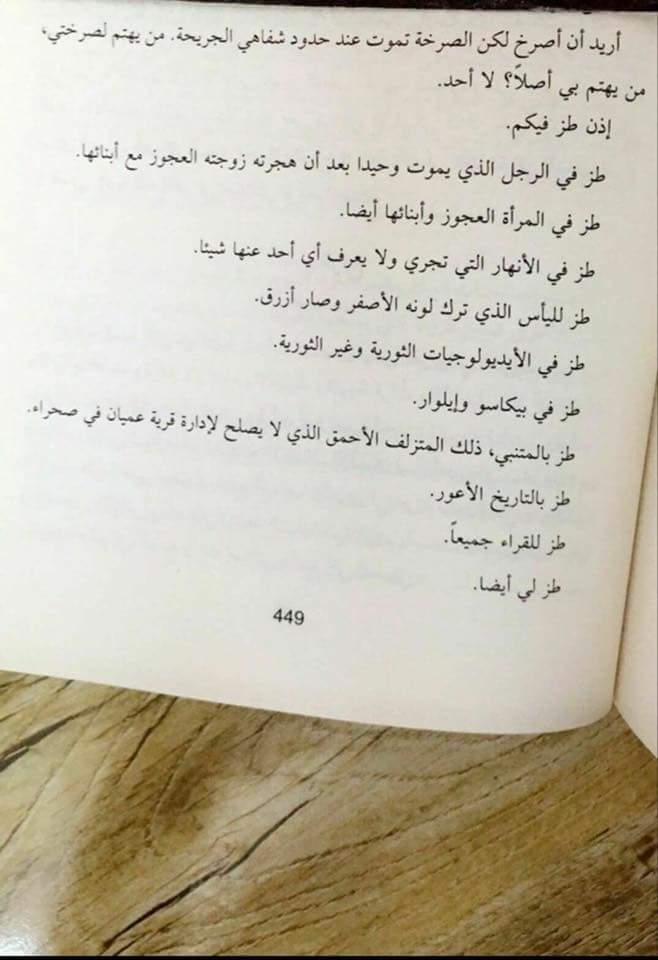 أريد أن أصرخ لكن الصرخة تموت عند حدود شفاهي الجريحة. من يهتم لصرختي،
من يهتم بي أصلاً؟ لا أحد.
إذن طز فيكم.
طز في الرجل الذي يموت وحيدا بعد أن هجرته زوجته العجوز مع أبنائها.
طز في المرأة العجوز وأبنائها أيضا.
طز في الأنهار التي تجري ولا يعرف أي أحد عنها شيئا.
طز لليأس الذي ترك لونه الأصفر وصار أزرق.
طز في الأيديولوجيات الثورية وغير الثورية.
طز في بيكاسو وإيلوار.
طز بالمتنبي، ذلك المتزلف الأحمق الذي لا يصلح لإدارة قرية عميان في صحراء.
طز بالتاريخ الأعور.
طز للقراء جميعاً.
طز لي أيضا.
449